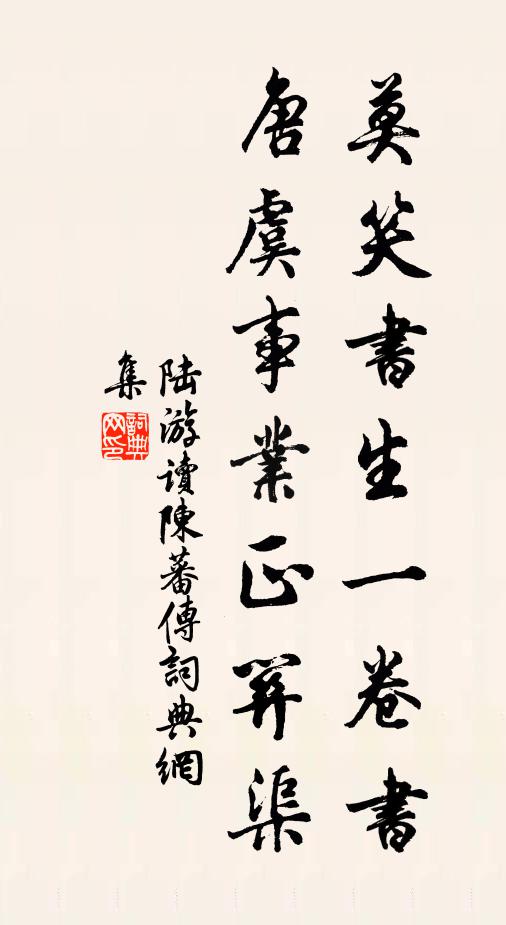 莫笑書生一卷書
唐虞事業正關渠
陸游讀陳蕃傳詞典網
集
詞典
网印